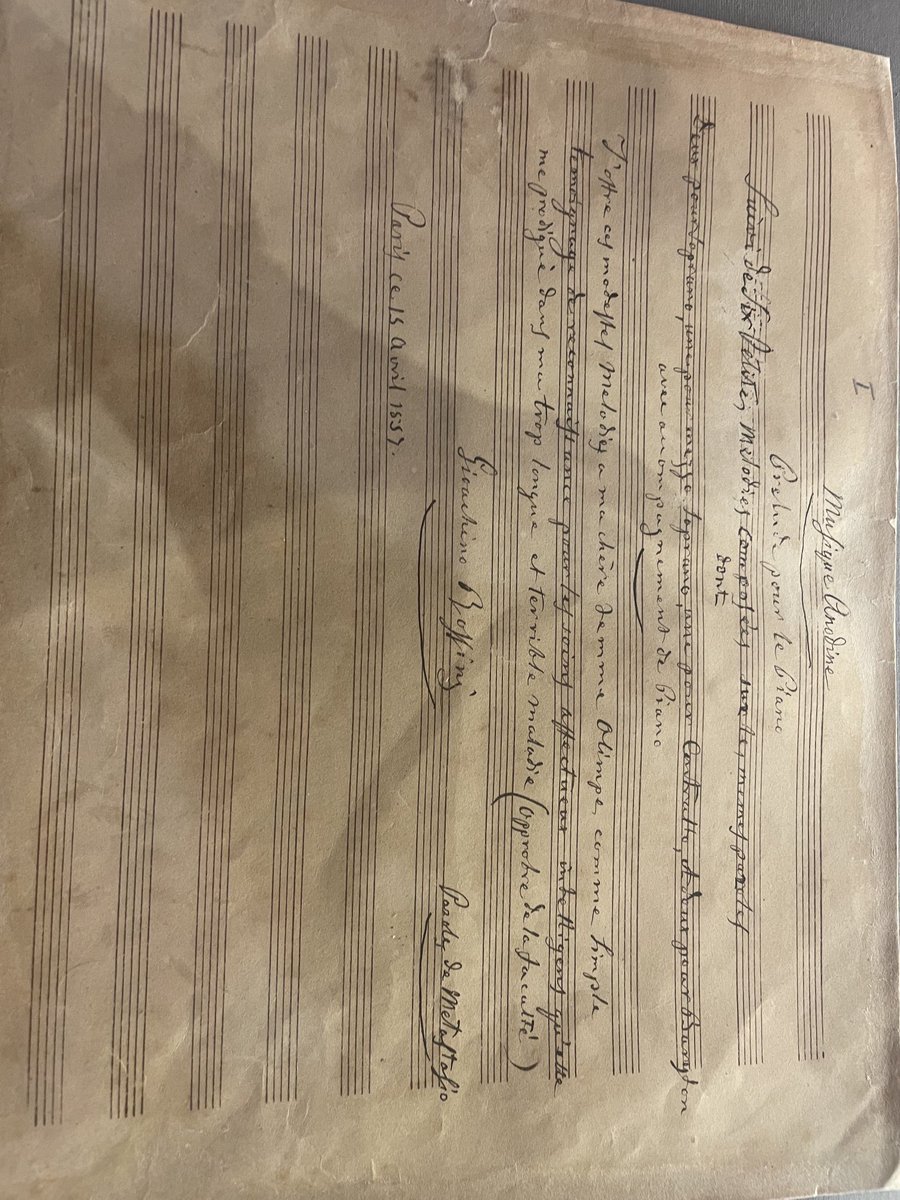 I
Musique Anodine
Prelude pour le Piano
Suivi de Six Petites Melodies composées sur les memes paroles
dont
Deux pour Soprano, une pour mezzo Soprano, une pour Contralto, et deux pour Baryton
avec accompagnement de Piano
J'offre ces modestes Melodies a ma chère femme Olimpe, comme simple
temoignage de reconnaissance pour les soins affectueux intelligens qu'elle
me prodigué dans ma trop longue et terrible maladie (Opprobre de la faculté)
Gioachino Rossini
Paroles de Metastasio
Paris ce 15 Avril 1857.